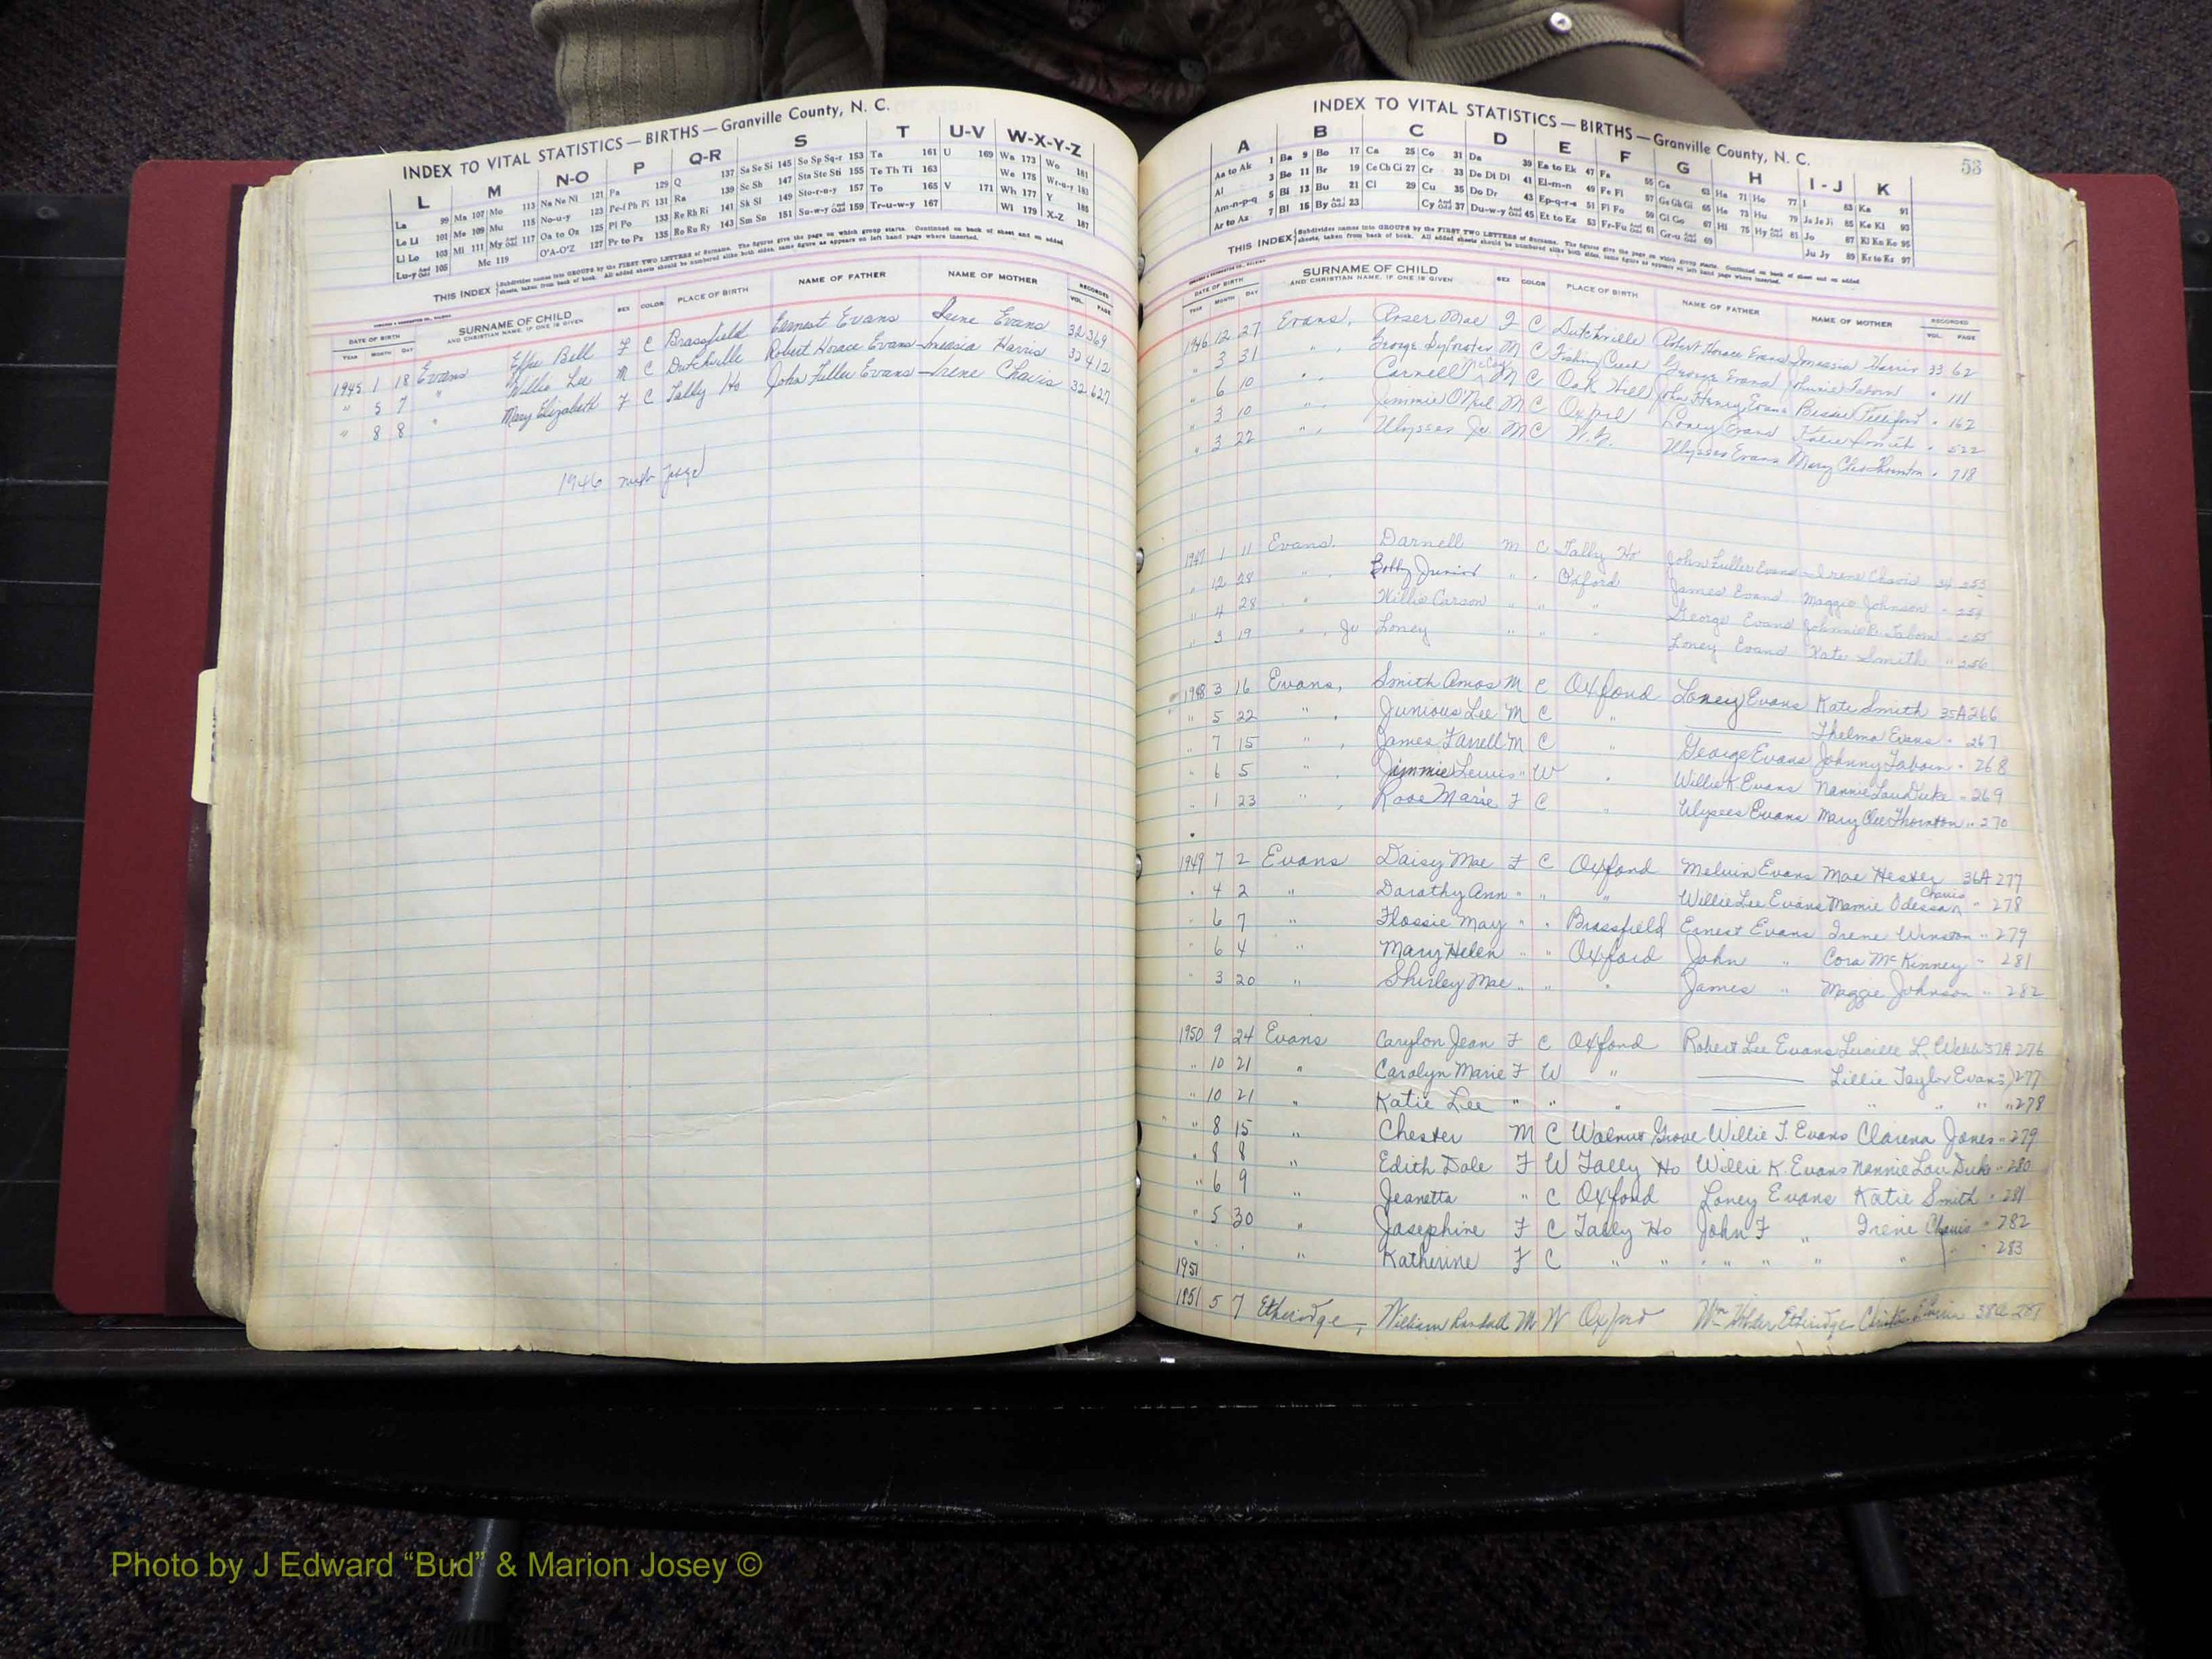 INDEX TO VITAL STATISTICS — BIRTHS — Granville County, N. C.
L M N-O P Q-R S T U-V W-X-Y-Z
La 99 Ma 107 Mo 113 Na Ne Ni 121 Pa 129 Q 137 Sa Se Si 145 So Sp Sq-r 153 Ta 161 U 169 Wa 173 Wo 181
Le Li 101 Me 109 Mu 115 No-u-y 123 Pe-f Ph Pi 131 Ra 139 Sc Sh 147 Sta Ste Sti 155 Te Th Ti 163 We 175 Wr-u-y 183
Ll Lo 103 Mi 111 My And Odd 117 Oa to Oz 125 Pl Po 133 Re Rh Ri 141 Sk Sl 149 Sto-r-u-y 157 To 165 V 171 Wh 177 Y 185
Lu-y And Odd 105 Mc 119 O'A-O'Z 127 Pr to Pz 135 Ro Ru Ry 143 Sm Sn 151 Su-w-y And Odd 159 Tr-u-w-y 167 Wi 179 X-Z 187
THIS INDEX Subdivides names into GROUPS by the FIRST TWO LETTERS of Surname. The figures give the page on which group starts. Continued on back of sheet and on added
sheets, taken from back of book. All added sheets should be numbered alike both sides, same figure as appears on left hand page where inserted.
DATE OF BIRTH YEAR MONTH DAY SURNAME OF CHILD AND CHRISTIAN NAME, IF ONE IS GIVEN SEX COLOR PLACE OF BIRTH NAME OF FATHER NAME OF MOTHER RECORDED VOL. PAGE
1945 1 18 Evans Effie Bell F C Brassfield Earnest Evans Irene Evans 32 369
" 5 7 " Willie Lee M C Dutchville Robert Horace Evans Harris 32 412
" 8 8 " Mary Elizabeth F C Tally Ho John Fuller Evans Irene Chavis 32 627
1946 next page
INDEX TO VITAL STATISTICS — BIRTHS — Granville County, N. C.
53
A B C D E F G H I-J K
Aa to Ak 1 Ba 9 Bo 17 Ca 25 Co 31 Da 39 Ea to Ek 47 Fa 55 Ga 63 Ha 71 Ho 77 I 83 Ka 91
Al 3 Be 11 Br 19 Ce Ch Ci 27 Cr 33 De Di Dl 41 El-m-n 49 Fe Fi 57 Ge Gh Gi 65 He 73 Hu 79 Ja Je Ji 85 Ke Ki 93
Am-n-p-q 5 Bi 13 Bu 21 Cl 29 Cu 35 Do Dr 43 Ep-q-r-s 51 Fl Fo 59 Gl Go 67 Hi 75 Hy And Odd 81 Jo 87 Kl Kn Ko 95
Ar to Az 7 Bl 15 By And Odd 23 Cy And Odd 37 Du-w-y And Odd 45 Et to Ez 53 Fr-Fu And Odd 61 Gr-u And Odd 69 Ju Jy 89 Kr to Kz 97
THIS INDEX Subdivides names into GROUPS by the FIRST TWO LETTERS of Surname. The figures give the page on which group starts. Continued on back of sheet and on added
sheets, taken from back of book. All added sheets should be numbered alike both sides, same figure as appears on left hand page where inserted.
DATE OF BIRTH YEAR MONTH DAY SURNAME OF CHILD AND CHRISTIAN NAME, IF ONE IS GIVEN SEX COLOR PLACE OF BIRTH NAME OF FATHER NAME OF MOTHER RECORDED VOL. PAGE
1946 12 27 Evans, Roser Mae F C Dutchville Robert Horace Evans Harris 33 62
" 3 31 " George Sylvester M C Fishing Creek George Evans Taborn " 111
" 6 10 " Carnell McCoy M C Oak Hill John Henry Evans Bessie " 162
" 3 10 " Jimmie O'Neil M C Oxford Loney Evans Katie Smith " 522
" 3 22 " Ulysses Jr. M C W.G. Ulysses Evans Mary Cleo Thornton " 718
1947 1 11 Evans. Darnell M C Tally Ho John Fuller Evans Irene Chavis 34 253
" 12 28 " Bobby Junior " " Oxford James Evans Maggie Johnson " 254
" 4 28 " Willie Carson " " " George Evans Taborn " 255
" 3 19 " , Jr Loney " " " Loney Evans Kate Smith " 256
1948 3 16 Evans, Smith Amos M C Oxford Loney Evans Kate Smith 35A 266
" 5 22 " , Junious Lee M C " —— Thelma Evans " 267
" 7 15 " , James Farrell M C " George Evans Johnny Taborn " 268
" 6 5 " , Jimmie Lewis " W " Willie K. Evans Nannie Lou Duke " 269
" 1 23 " , Rose Marie F C " Ulysees Evans Mary Cleo Thornton " 270
1949 7 2 Evans Daisy Mae F C Oxford Melvin Evans Mae Hester 36A 277
" 4 2 " Dorathy Ann " " " Willie Lee Evans Mamie Odessa Chavis " 278
" 6 7 " Flossie May " " Brassfield Ernest Evans Irene Winston " 279
" 6 4 " Mary Helen " " Oxford John " Cora McKinney " 281
" 3 20 " Shirley Mae " " " James " Maggie Johnson " 282
1950 9 24 Evans Carylon Jean F C Oxford Robert Lee Evans Lucille L. Webb 37A 276
" 10 21 " Carolyn Marie F W " —— Lillie Taylor Evans 277
" 10 21 " Katie Lee " " " —— " " " " 278
" 8 15 " Chester M C Walnut Grove Willie T. Evans Clarena Jones " 279
" 8 8 " Edith Dale F W Tally Ho Willie K. Evans Nannie Lou Duke " 280
" 6 9 " Jeanetta " C Oxford Loney Evans Katie Smith " 281
" 5 30 " Josephine F C Tally Ho John F " Irene Chavis " 282
" " " " Katherine F C " " " " " " " " 283
1951
1951 5 7 Etheridge, William Randall M W Oxford Wm Etheridge 38A 287
Photo by J Edward “Bud” & Marion Josey ©